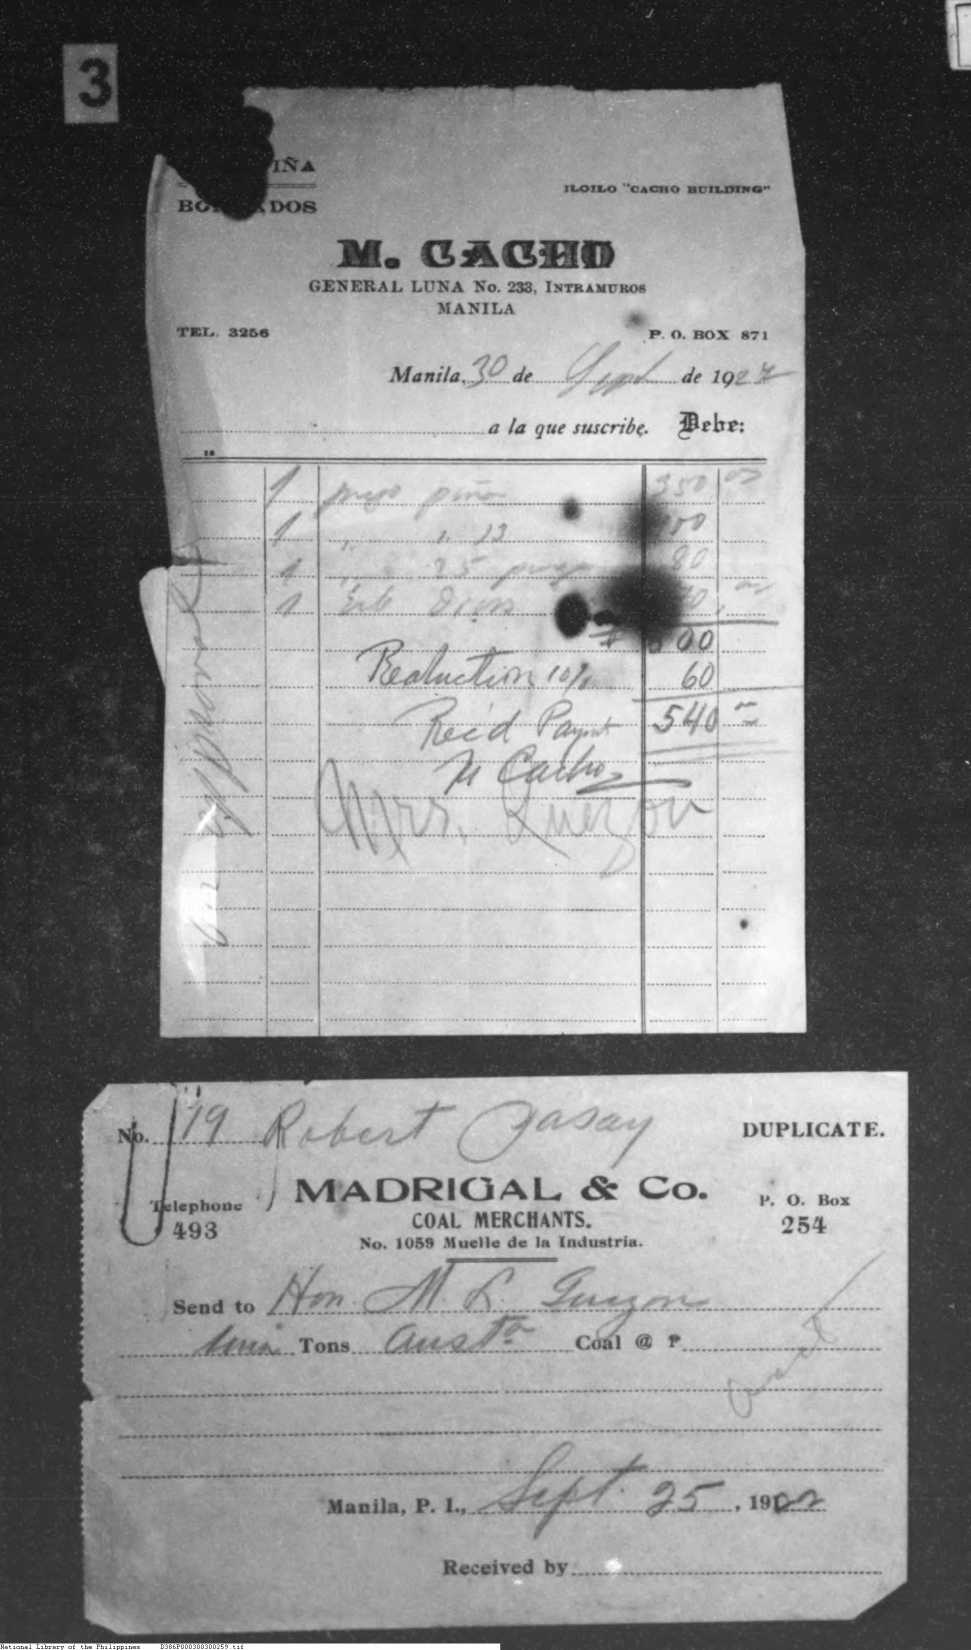 3
IÑA
ILOILO "CACHO BUILDING"
BO DOS
M. CACHO
GENERAL LUNA No. 233, INTRAMUROS
MANILA
TEL. 3256
P. O. BOX 871
Manila, 30 de Sept de 192
a la que suscribe. Debe:
1 piña 350 00
1 " " 13
1 " 25 80
1
600
Reduction 10% 60
Rec'd Paym't 540
M Cacho
Mrs. Quezon
No. 119 Robert Gasay DUPLICATE.
Telephone 493
MADRIGAL & Co.
COAL MERCHANTS.
No. 1059 Muelle de la Industria.
P. O. Box 254
Send to Hon. M. L. Quezon
Tons Aust Coal @ ₱
Manila, P. I., Sept. 25, 1922
Received by
National Library of the Philippines D386P000300300259.tif